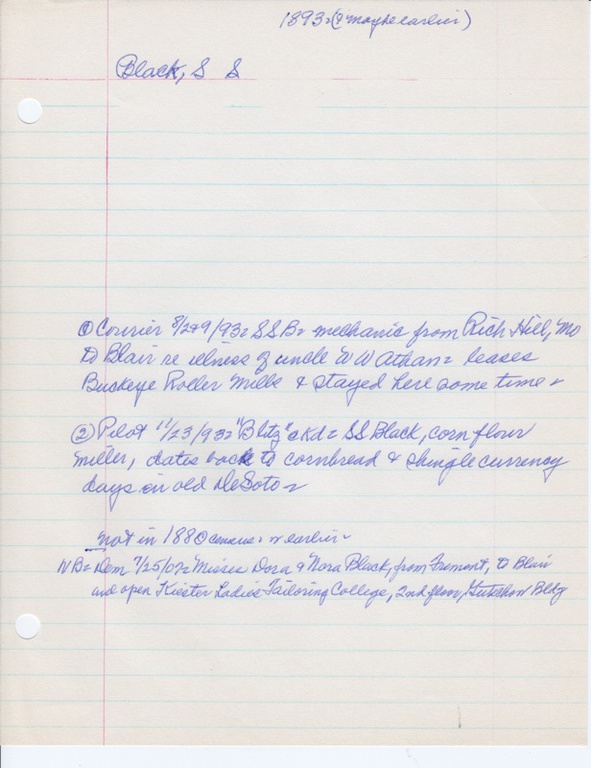 1893 = (? maybe earlier)
Black, S S
① Courier 8/2&9/93 = SSB = mechanic from Rich Hill, Mo
to Blair re illness of uncle W W Athan = leases
Buckeye Roller Mills & stayed here some time =
② Pilot 11/23/93 = "Blitz" = SS Black, corn flour
miller, dates back to cornbread & shingle currency
days in old DeSoto =
not in 1880 census = or earlier =
NB = Dem 7/25/07 = Misses Dora & Nora Black, from Fremont, to Blair
and open Kiester Ladies Tailoring College, 2nd floor, Bldg